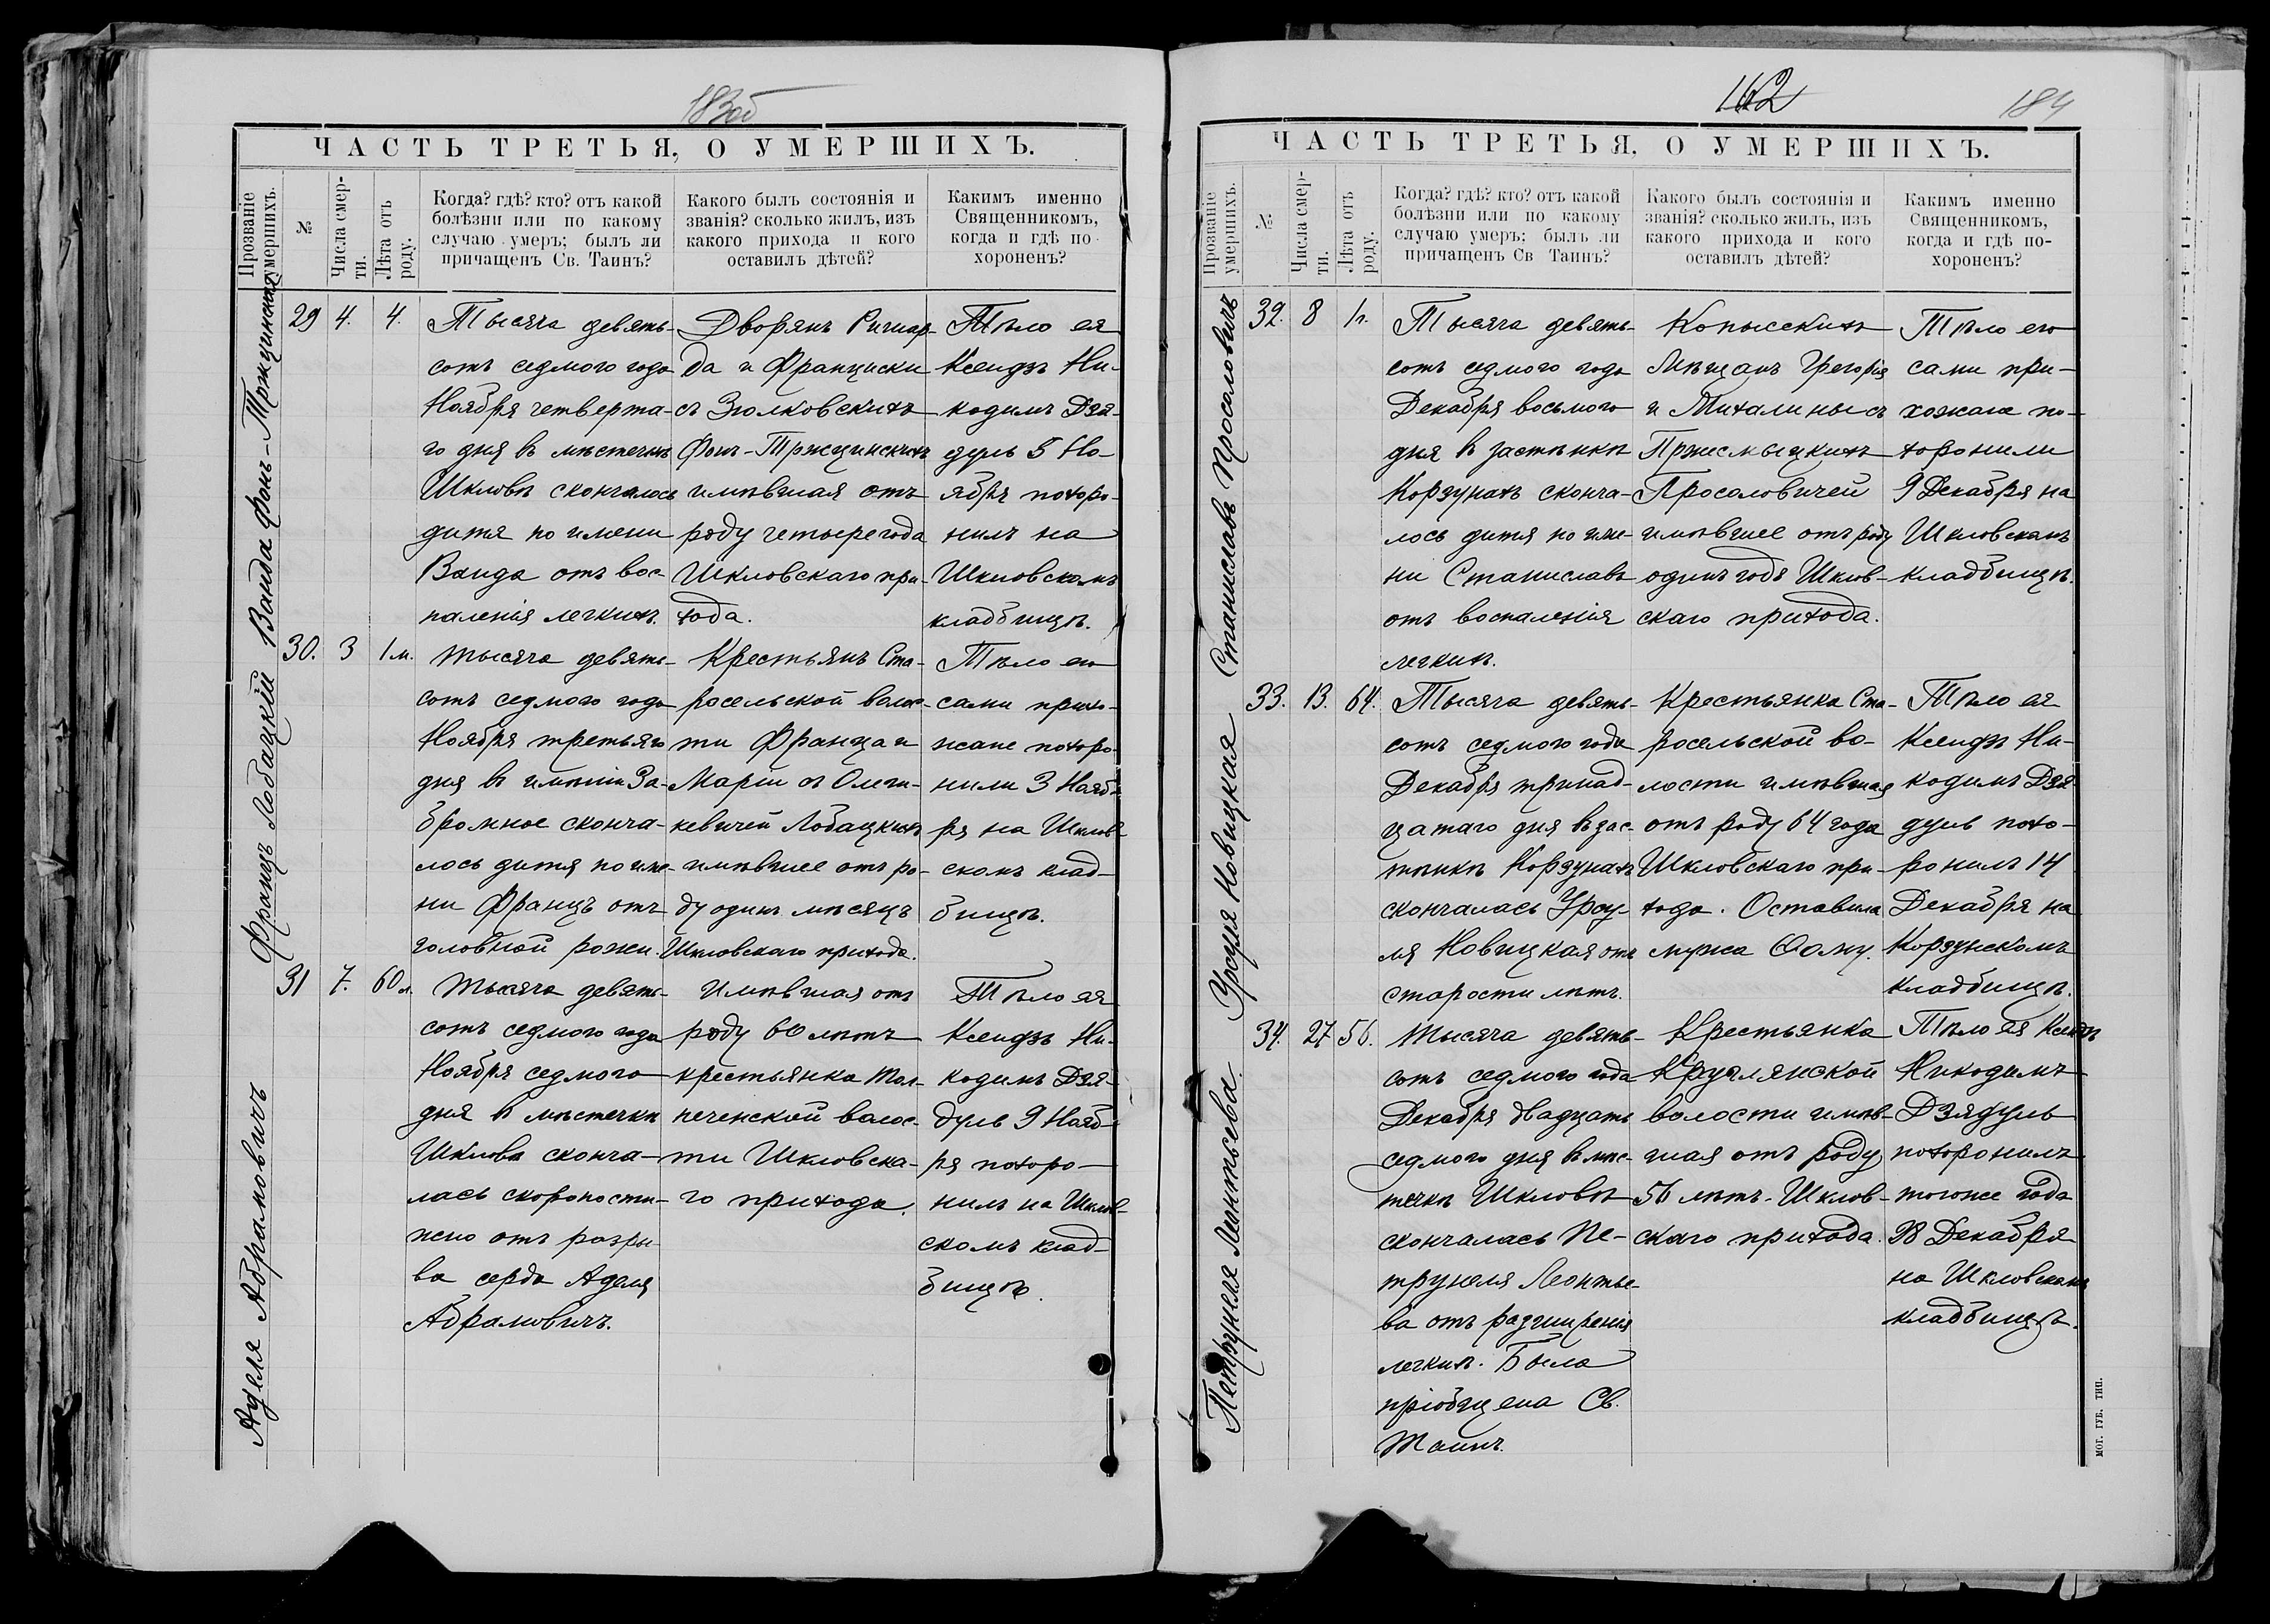 183об
ЧАСТЬ ТРЕТЬЯ, О УМЕРШИХЪ.
Прозваніе умершихъ.
№
Числа смер-
ти.
Лѣта отъ
роду.
Когда? гдѣ? кто? отъ какой
болѣзни или по какому
случаю умеръ; былъ ли
причащенъ Св. Таинъ?
Какого былъ состоянія и
званія? сколько жилъ, изъ
какого прихода и кого
оставилъ дѣтей?
Какимъ именно
Священникомъ,
когда и гдѣ по-
хороненъ?
Ванда фонъ-Тржцинская
29
4.
4.
Тысяча девять-
сотъ седмого года
Ноября четверта-
го дня въ мѣстечкѣ
Шкловѣ скончалось
дитя по имени
Ванда отъ вос-
паленія легкихъ.
Дворянъ Ричар-
да и Франциски
съ Зюлковскихъ
Фонъ-Тржцинскихъ
имѣвшая отъ
роду четыре года
Шкловскаго при-
хода.
Тѣло ея
Ксендзъ Ни-
кодимъ Дзя-
дуль 5 Но-
ября похоро-
нилъ на
Шкловскомъ
кладбищѣ.
Францъ Лобацкій
30.
3
1 м.
Тысяча девять-
сотъ седмого года
Ноября третьяго
дня въ имѣніи За-
бромное сконча-
лось дитя по име-
ни Францъ отъ
головной рожи.
Крестьянъ Ста-
росельской волос-
ти Франца и
Маріи съ Олеш-
кевичей Лобацкихъ
имѣвшее отъ ро-
ду одинъ мѣсяцъ
Шкловскаго прихода.
Тѣло его
сами прихо-
жане похоро-
нили 3 Нояб-
ря на Шклов-
скомъ клад-
бищѣ.
Аделя Абрамовичъ
31
7.
60 л.
Тысяча девять-
сотъ седмого года
Ноября седмого
дня въ мѣстечкѣ
Шкловѣ сконча-
лась скоропости-
жно отъ разры-
ва серда Аделя
Абрамовичъ.
Имѣвшая отъ
роду 60 лѣтъ
крестьянка Тол-
печенской волос-
ти Шкловска-
го прихода.
Тѣло ея
Ксендзъ Ни-
кодимъ Дзя-
дуль 9 Нояб-
ря похоро-
нилъ на Шклов-
скомъ клад-
бищѣ.
162
184
ЧАСТЬ ТРЕТЬЯ, О УМЕРШИХЪ.
Прозваніе
умершихъ.
№
Числа смер-
ти.
Лѣта отъ
роду.
Когда? гдѣ? кто? отъ какой
болѣзни или по какому
случаю умеръ; былъ ли
причащенъ Св Таинъ?
Какого былъ состоянія и
званія? сколько жилъ, изъ
какого прихода и кого
оставилъ дѣтей?
Какимъ именно
Священникомъ,
когда и гдѣ по-
хороненъ?
Станиславъ Просаловичъ
32.
8
1 г.
Тысяча девять-
сотъ седмого года
Декабря восьмого
дня въ застѣнкѣ
Корзунахъ сконча-
лось дитя по име-
ни Станиславъ
отъ воспаленія
легкихъ.
Копысскихъ
Мѣщанъ Григорія
и Михалины съ
Пржесмыцкихъ
Просаловичей
имѣвшее отъ роду
одинъ годъ Шклов-
скаго прихода.
Тѣло его
сами при-
хожане по-
хоронили
9 Декабря на
Шкловскомъ
кладбищѣ.
Урсуля Новицкая
33.
13.
64.
Тысяча девять-
сотъ седмого года
Декабря тринад-
цатаго дня въ зас-
тѣнкѣ Корзунахъ
скончалась Урсу-
ля Новицкая отъ
старости лѣтъ.
Крестьянка Ста-
росельской во-
лости имѣвшая
отъ роду 64 года
Шкловскаго при-
хода. Оставила
мужа Ѳому.
Тѣло ея
Ксендзъ Ни-
кодимъ Дзя-
дуль похо-
ронилъ 14
Декабря на
Корзунскомъ
кладбищѣ.
Петрунеля Леонтьева
34.
27
56.
Тысяча девять-
сотъ седмого года
Декабря двадцать
седмого дня въ мѣс-
течкѣ Шкловѣ
скончалась Пе-
трунеля Леонтье-
ва отъ разширенія
легкихъ. Была
пріобщена Св.
Таинъ.
Крестьянка
Круглянской
волости имѣв-
шая отъ роду
56 лѣтъ. Шклов-
скаго прихода.
Тѣло ея Ксендзъ
Никодимъ
Дзядуль
похоронилъ
тогоже года
28 Декабря
на Шкловскомъ
кладбищѣ.
МОГ. ГУБ. ТИП.